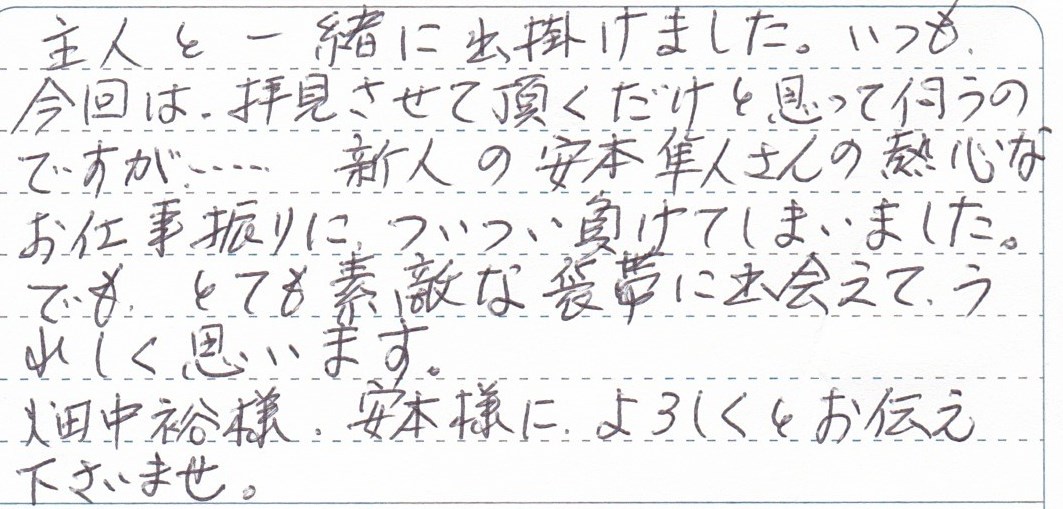 主人と一緒に出掛けました。いつも、
今回は、拝見させて頂くだけと思って伺うの
ですが‥‥‥ 新人の安本隼人さんの熱心な
お仕事振りに、ついつい負けてしまいました。
でも、とても素敵な袋帯に出会えて、う
れしく思います。
畑中裕様、安本様に、よろしくとお伝え
下さいませ。